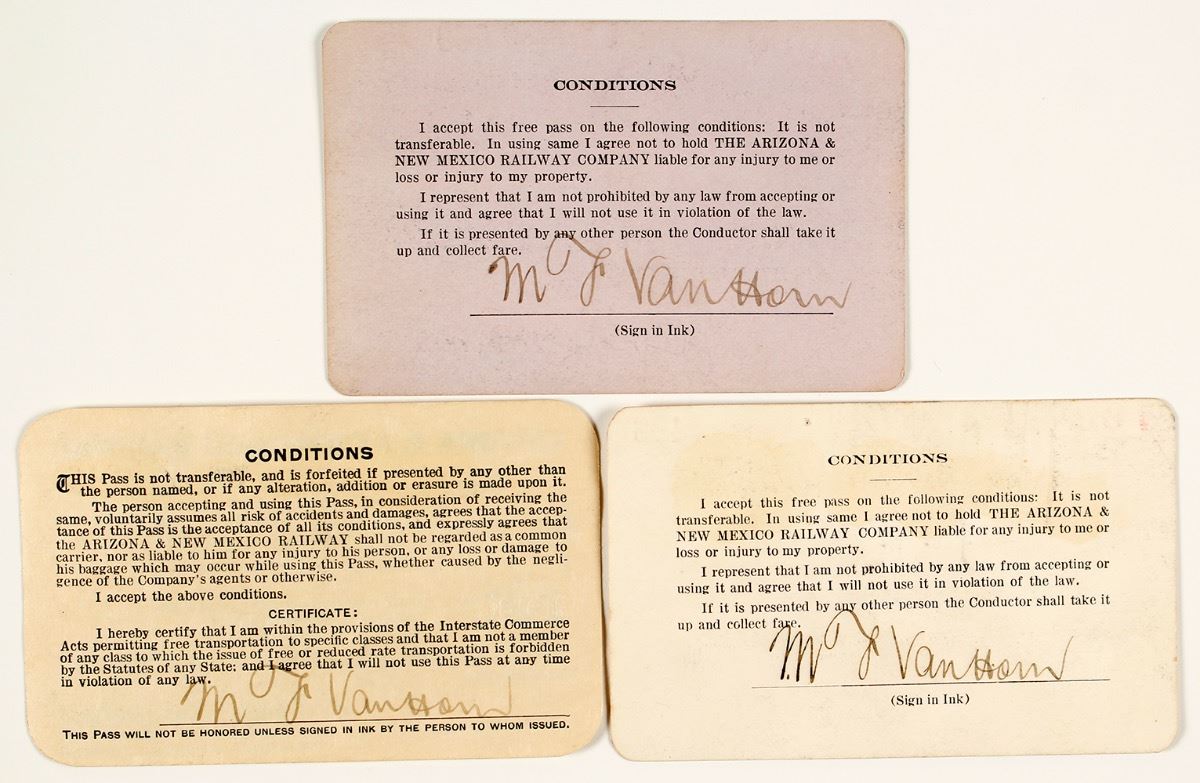 CONDITIONS
I accept this free pass on the following conditions: It is not
transferable. In using same I agree not to hold THE ARIZONA &
NEW MEXICO RAILWAY COMPANY liable for any injury to me or
loss or injury to my property.
I represent that I am not prohibited by any law from accepting or
using it and agree that I will not use it in violation of the law.
If it is presented by any other person the Conductor shall take it
up and collect fare.
M F Van Horn
(Sign in Ink)
CONDITIONS
THIS Pass is not transferable, and is forfeited if presented by any other than
the person named, or if any alteration, addition or erasure is made upon it.
The person accepting and using this Pass, in consideration of receiving the
same, voluntarily assumes all risk of accidents and damages, agrees that the accep-
tance of this Pass is the acceptance of all its conditions, and expressly agrees that
the ARIZONA & NEW MEXICO RAILWAY shall not be regarded as a common
carrier, nor as liable to him for any injury to his person, or any loss or damage to
his baggage which may occur while using this Pass, whether caused by the negli-
gence of the Company's agents or otherwise.
I accept the above conditions.
CERTIFICATE:
I hereby certify that I am within the provisions of the Interstate Commerce
Acts permitting free transportation to specific classes and that I am not a member
of any class to which the issue of free or reduced rate transportation is forbidden
by the Statutes of any State; and I agree that I will not use this Pass at any time
in violation of any law.
M F Van Horn
THIS PASS WILL NOT BE HONORED UNLESS SIGNED IN INK BY THE PERSON TO WHOM ISSUED.
CONDITIONS
I accept this free pass on the following conditions: It is not
transferable. In using same I agree not to hold THE ARIZONA &
NEW MEXICO RAILWAY COMPANY liable for any injury to me or
loss or injury to my property.
I represent that I am not prohibited by any law from accepting or
using it and agree that I will not use it in violation of the law.
If it is presented by any other person the Conductor shall take it
up and collect fare.
M F Van Horn
(Sign in Ink)